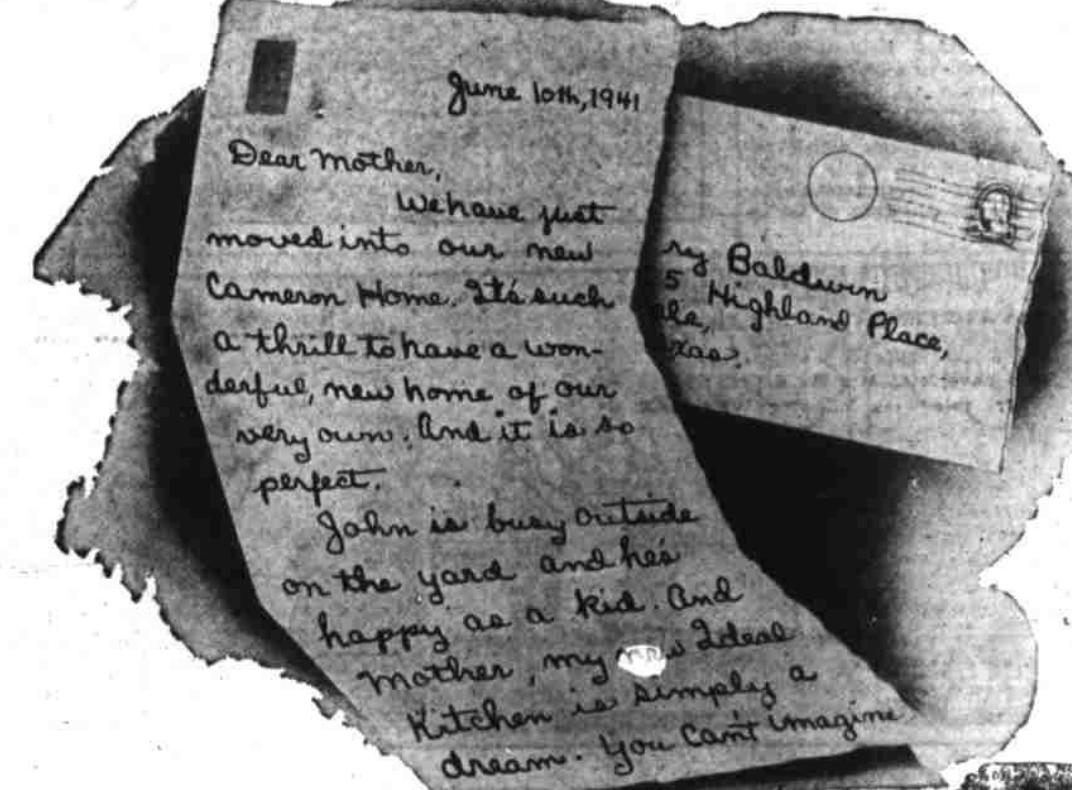 June 10th, 1941
Dear Mother,
We have just
moved into our new
Cameron Home. It's such
a thrill to have a won-
derful, new home of our
very own. And it is so
perfect.
John is busy outside
on the yard and he's
happy as a kid. And
Mother, my new Ideal
Kitchen is simply a
dream. You can't imagine
ry Baldwin
5 Highland Place,
ale,
xas.